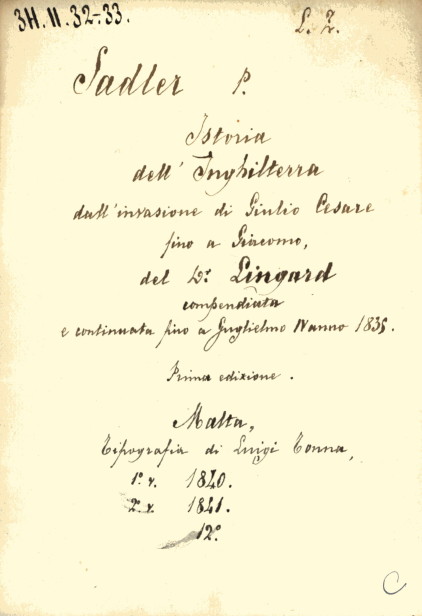 3H. II. 32-33.
L. Z.
Sadler P.
Istoria
dell' Inghilterra
dall'invasione di Giulio Cesare
fino a Giacomo,
del Dr. Lingard
compendiata
e continuata fino a Guglielmo IV anno 1835.
Prima edizione.
Malta,
Tipografia di Luigi Tonna,
1º v. 1840.
2º v. 1841.
12º
C